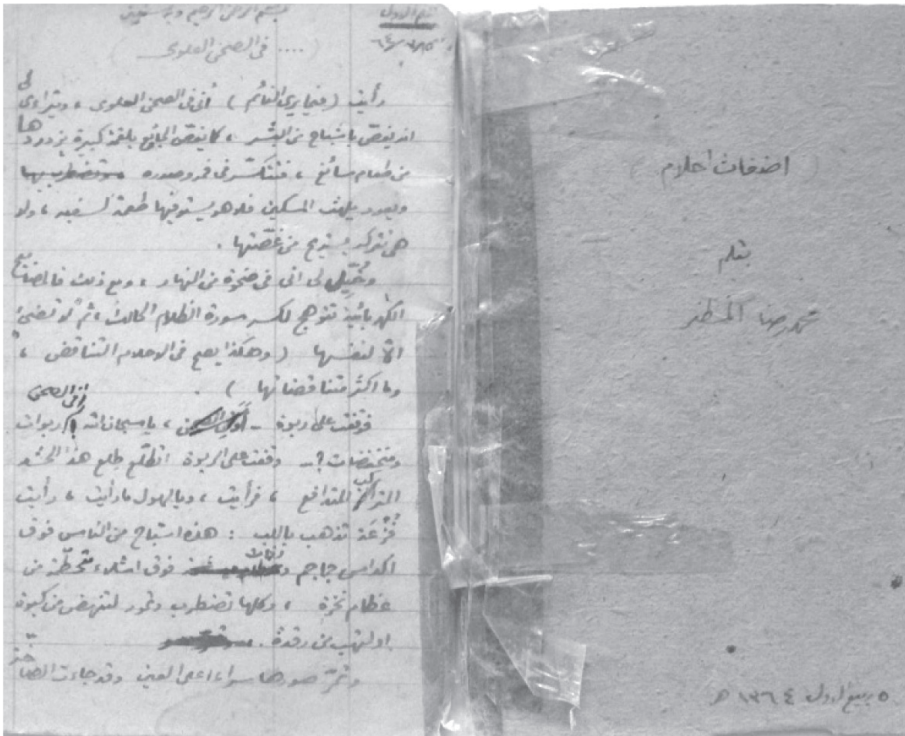 اضغاث احلام
بقلم
محمد رضا المظفر
٥ ربيع الاول ١٣٦٤ هـ
بسم الله الرحمن الرحيم وبه نستعين
(.... في الصحن العلوي)
رأيت (فيما يرى النائم) أني في الصحن العلوي ، ويتراءى لي
انه يغص باشباح من البشر ، كما يغص الجائع بلقمة كبيرة يزدردها
من طعام سائغ ، فتتكسر في فمه وصدره
ويعود يلهث المسكين فلا هو يستوفيها طعمة لسغبه ، ولا
هي تتركه يستريح من غصتها .
وخُيّل لي اني في ضحوة من النهار ، ومع ذلك فالمصابيح
الكهربائية تتوهج لكسر سورة الظلام الحالك ، ثم لا تضيء
الا لنفسها (وهكذا يصح في الاحلام التناقض ،
وما اكثر متناقضاتها) .
فوقفت على ربوة - أفي الصحن ، يا سبحان الله ! ربوات
ومنخفضات ؟ - وقفت على الربوة اتطلع طلع هذا الحشد
المتراكب المتدافع ، فرأيت ، ويا لهول ما رأيت ، رأيت
فزعة تذهب باللب : هذه اشباح من الناس فوق
اكداس جماجم ورفات فوق اشلاء محطمة من
عظام نخرة ، وكلها تضطرب وتمور لتنهض من كبوة
او لتهب من رقدة .
وتمر صورها سراعا على العين وقد جاءت الصاخة